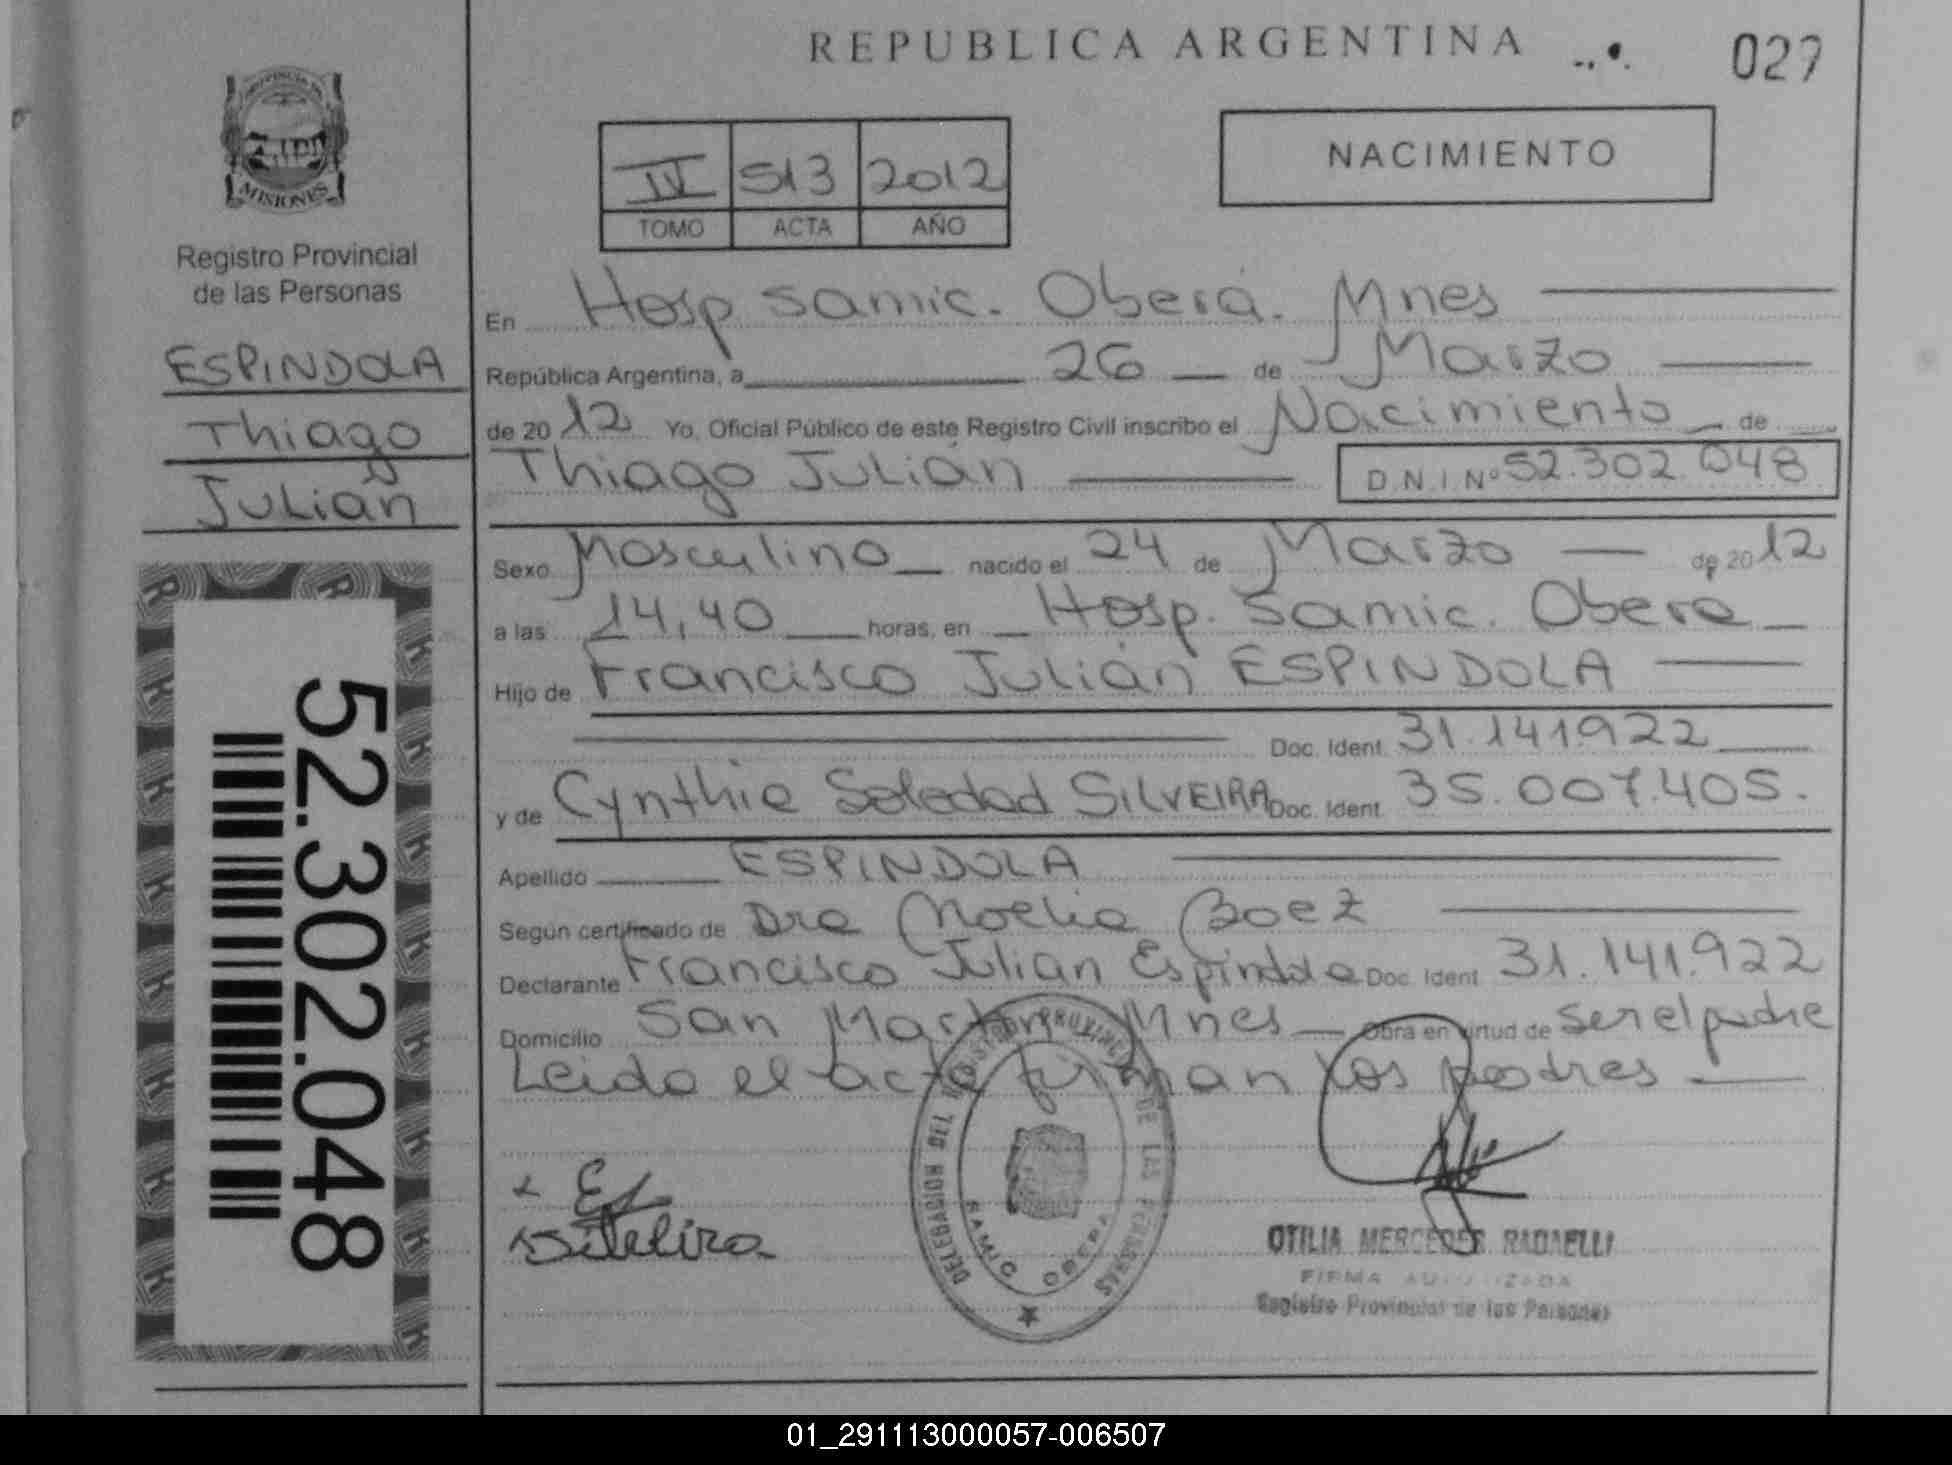 REPUBLICA ARGENTINA
029
MISIONES
Registro Provincial
de las Personas
ESPINDOLA
Thiago
Julián
52.302.048
IV 513 2012
TOMO ACTA AÑO
NACIMIENTO
En Hosp Samic. Oberá. Mnes
República Argentina, a 26 de Marzo
de 2012 Yo, Oficial Público de este Registro Civil inscribo el Nacimiento de
Thiago Julián D.N.I. Nº 52.302.048
Sexo Masculino nacido el 24 de Marzo de 2012
a las 14,40 horas, en Hosp. Samic. Obera
Hijo de Francisco Julián ESPINDOLA
Doc. Ident. 31.141.922
y de Cynthia Soledad SILVEIRA Doc. Ident. 35.007.405.
Apellido ESPINDOLA
Según certificado de Dra Noelia Baez
Declarante Francisco Julian Espindola Doc. Ident. 31.141.922
Domicilio San Martin Mnes Obra en virtud de ser el padre
Leido el acta firman los padres
DELEGACION DEL REGISTRO PROVINCIAL DE LAS PERSONAS
SAMIC OBERA
OTILIA MERCEDES RADAELLI
FIRMA AUTORIZADA
Registro Provincial de las Personas
01_291113000057-006507